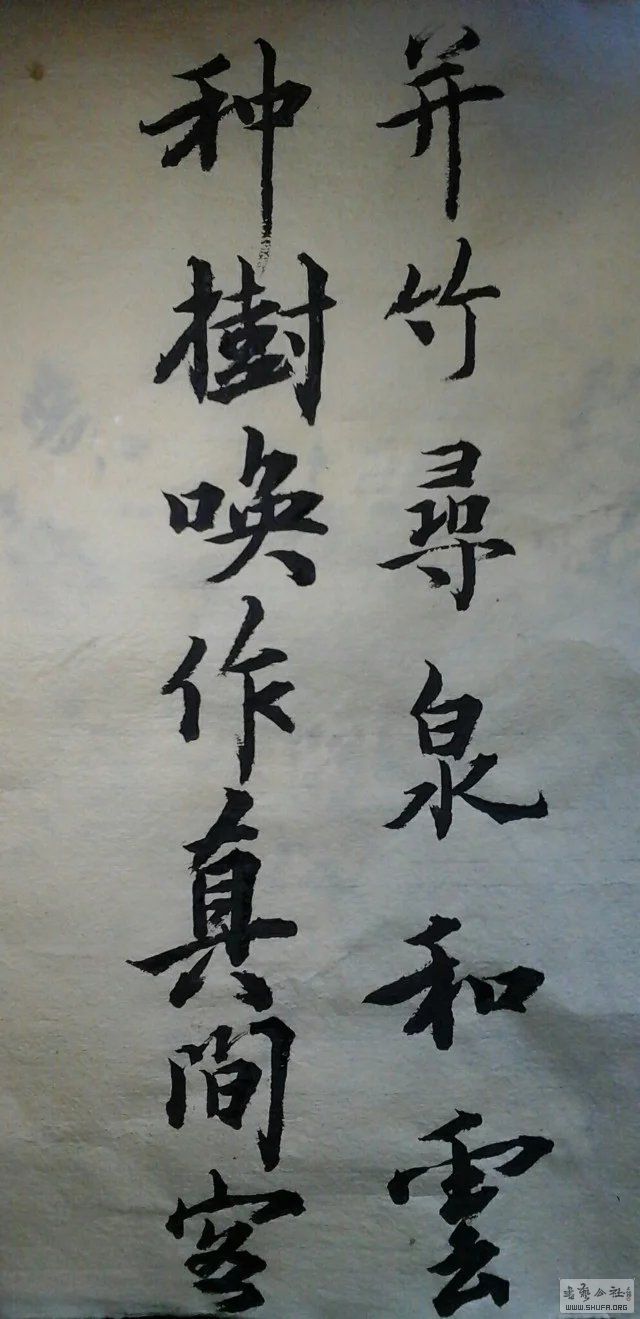 并竹尋泉和雲
种樹喚作真間客
书艺公社
WWW.SHUFA.ORG